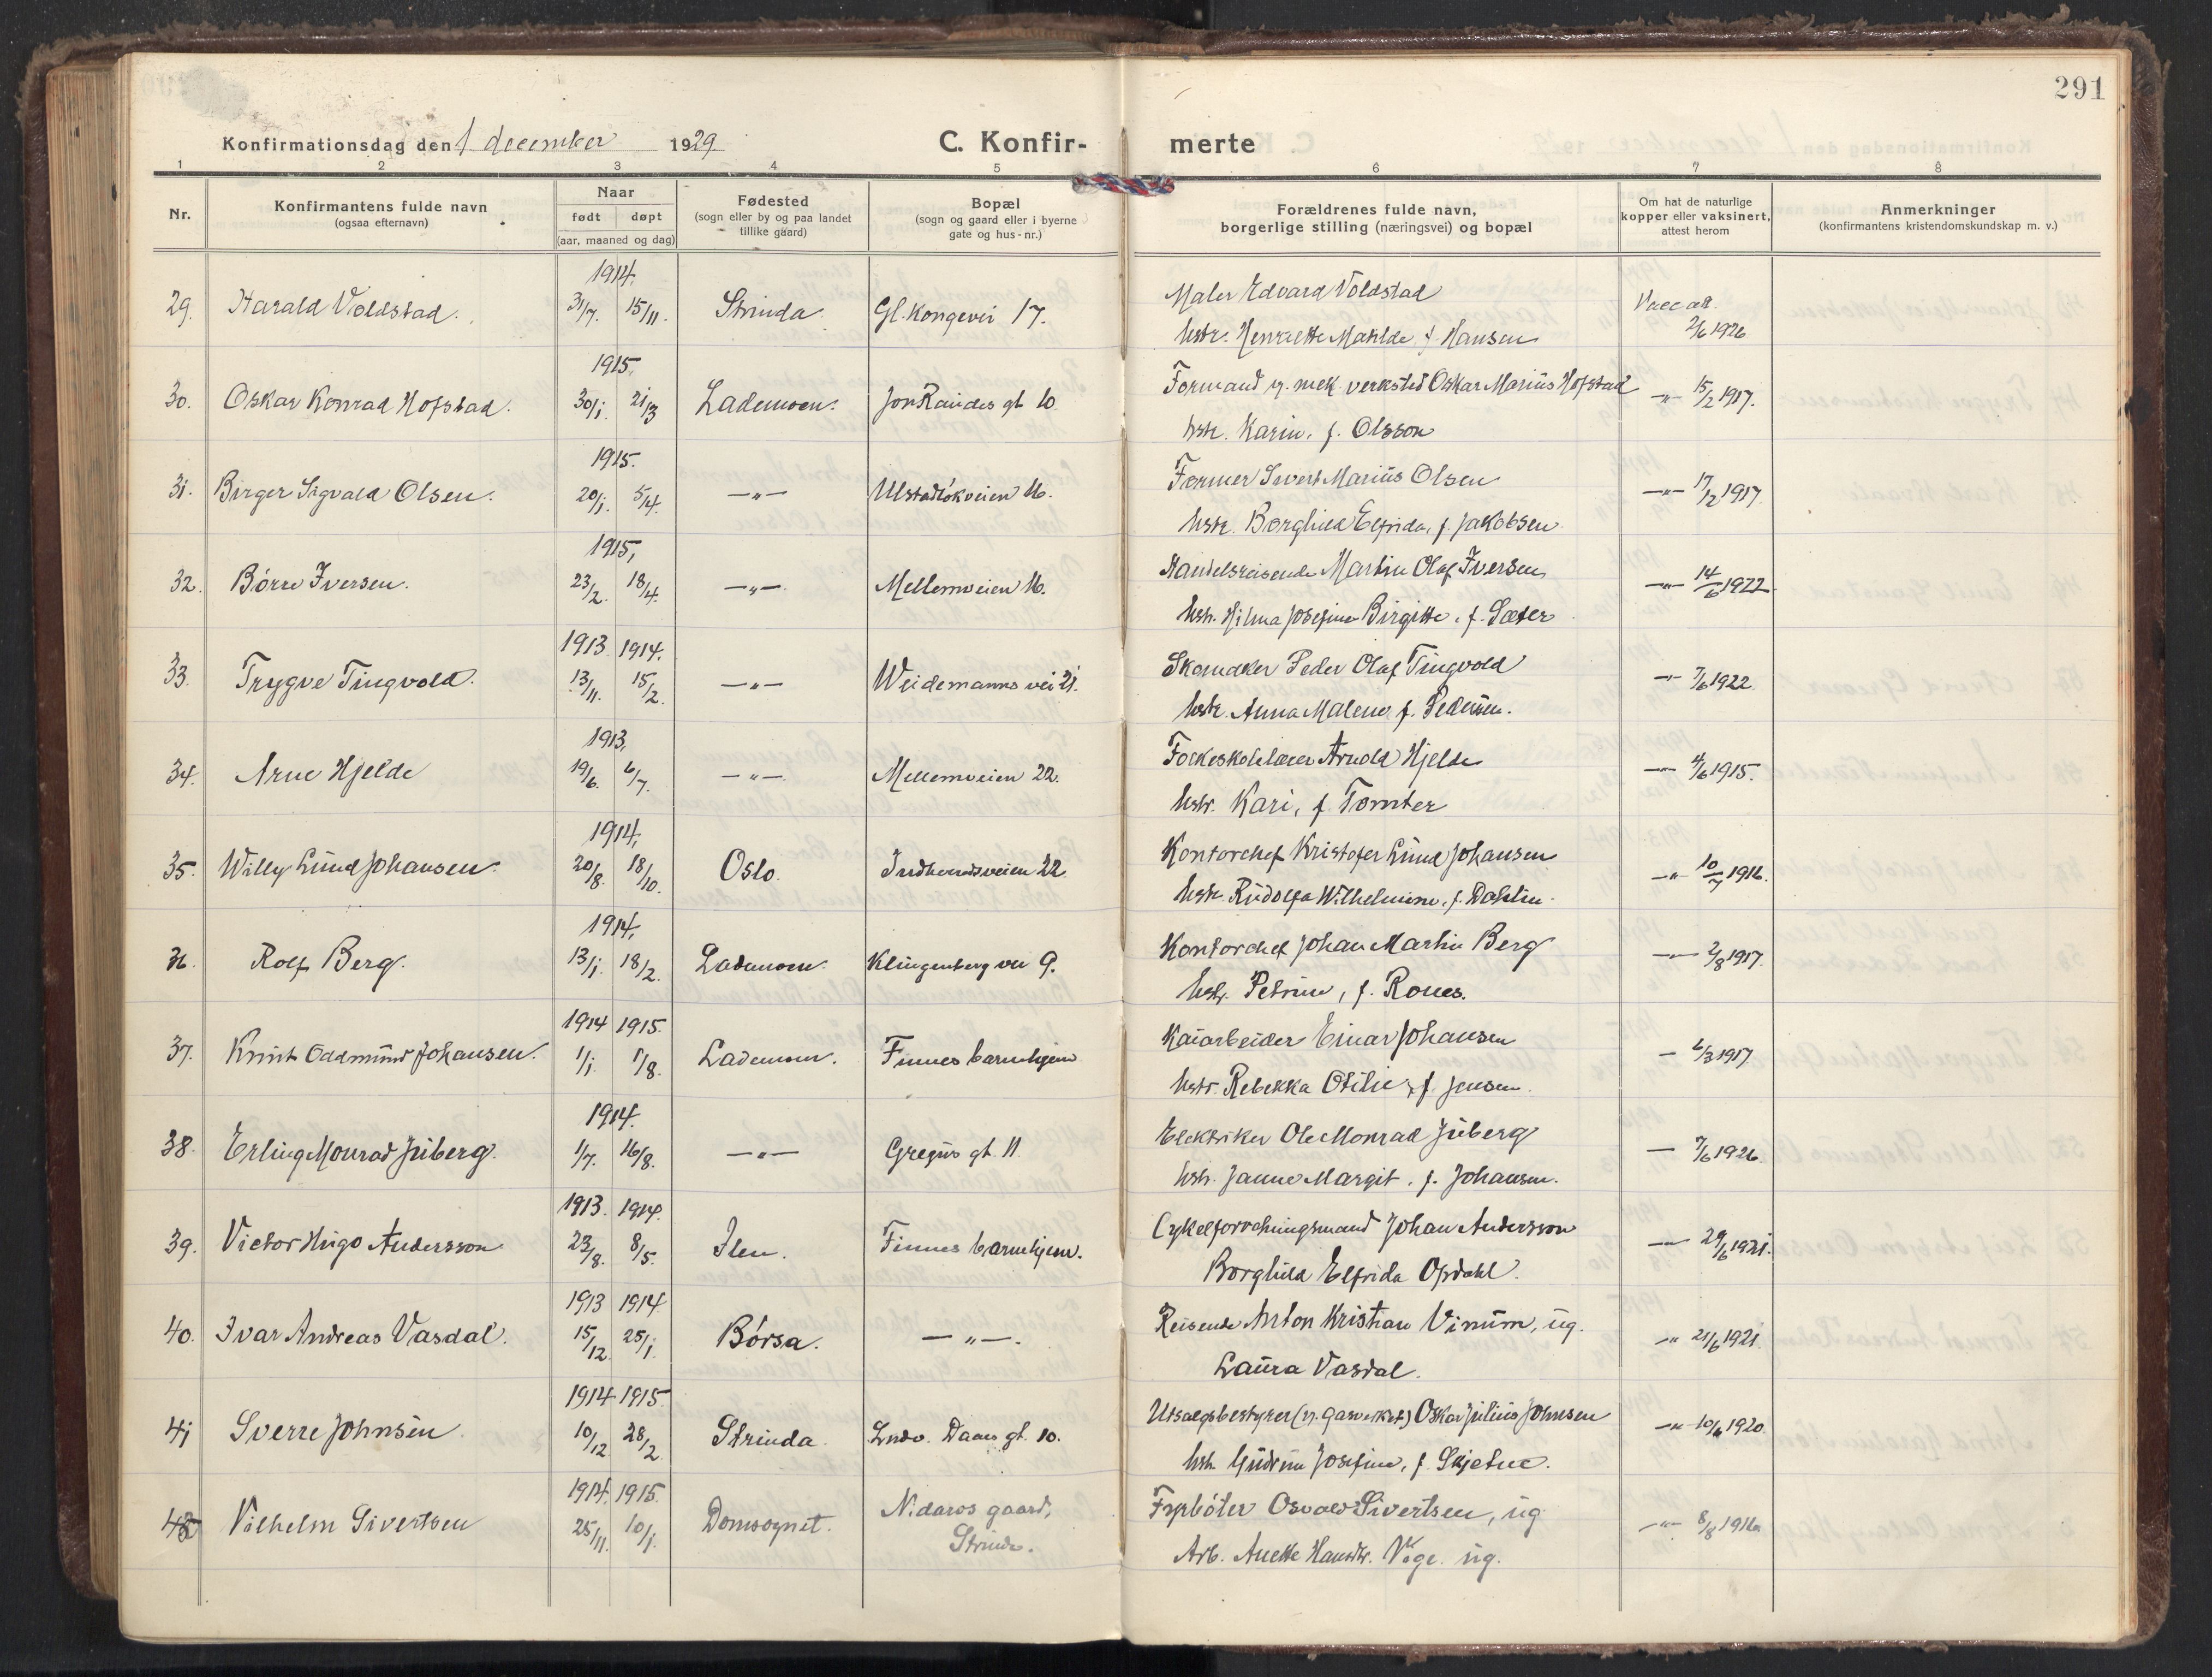 291
Konfirmationsdag den 1 december 1929.
C. Konfir-
merte
1 2 3 4 5 6 7 8
Nr.
Konfirmantens fulde navn
(ogsaa efternavn)
Naar
født døpt
(aar, maaned og dag)
Fødested
(sogn eller by og paa landet
tillike gaard)
Bopæl
(sogn og gaard eller i byerne
gate og hus-nr.)
Forældrenes fulde navn,
borgerlige stilling (næringsvei) og bopæl
Om hat de naturlige
kopper eller vaksinert,
attest herom
Anmerkninger
(konfirmantens kristendomskundskap m. v.)
1914.
29. Harald Voldstad. 31/7. 15/11. Strinda Gl. Kongevei 17. Maler Edvard Voldstad
hstr. Henriette Matilde f. Hansen
2/6 1926
1915.
30. Oskar Konrad Hofstad. 30/1. 21/3 Lademoen. Jon Raudes gt 10. Formand v. mek. verksted Oskar Marius Hofstad —"— 15/2 1917.
hstr. Karin, f. Olsson
1915.
31. Birger Sigvald Olsen. 20/1. 5/4. —"— Ulstadløkveien 16. Former Sivert Marius Olsen —"— 17/12 1917.
hstr. Borghild Elfrida, f. Jakobsen
1915,
32. Børre Iversen. 23/2. 18/4. —"— Mellemveien 16. Handelsreisende Martin Olaf Iversen —"— 14/6 1922.
hstr. Hilma Josefine Birgitte, f. Sæter
1913. 1914.
33. Trygve Tingvold. 13/11. 15/2. —"— Weidemanns vei 21. Skomaker Peder Olaf Tingvold —"— 7/6 1922.
hstr. Anna Malene f. Pedersen.
1913.
34. Arne Hjelde 19/6. 6/7. —"— Mellemveien 22. Folkeskolelærer Arnold Hjelde —"— 4/6 1915.
hstr. Kari, f. Tomter
1914.
35. Willy Lund Johansen. 20/8. 18/10. Oslo. Indherredsveien 22 Kontorchef Kristofer Lund Johansen —"— 10/7 1916.
hstr. Rudolfa Wilhelmine, f. Dahlin.
1914.
36. Rolf Berg. 13/1. 18/2. Lademoen. Klingenberg vei 9. Kontorchef Johan Martin Berg —"— 2/8 1917.
hstr. Petrine, f. Rones.
1914 1915.
37. Knut Oddmund Johansen. 1/1. 1/8. Lademoen. Finnes barnehjem Kaiarbeider Einar Johansen — 6/3 1917
hstr. Rebekka Otilie, f. Jensen.
1914.
38. Erling Monrad Juberg. 1/7. 16/8. —"— Gregus gt. 11. Elektriker Ole Monrad Juberg — 7/6 1926.
hstr. Janne Margit, f. Johansen.
1913. 1914.
39. Victor Hugo Andersson 23/8. 8/5. Ilen. Finnes barnehjem. Johan Andersson — 29/6 1921.
Borghild Elfrida Opdahl.
1913 1914
40. Ivar Andreas Vasdal. 15/12. 25/1. Børsa. —"—. Reisende Anton Kristian Vinum, ug. —"— 21/6 1921.
Laura Vasdal.
1914 1915.
41 Sverre Johnsen. 10/12 28/2. Strinda. Ludv. Daaes gt. 10. Utsalgsbestyrer (v. Gasverket) Oskar Julius Johnsen —"— 10/6 1920.
hstr. Gudrun Josefine, f. Skjetne.
1914. 1915.
42 Vilhelm Sivertsen 25/11. 10/1. Domsognet. Nidaros gaard, Fyrbøter Osvald Sivertsen, ug —"— 8/8 1916.
Strinda.
Arb. Anette Hansdtr. Vege. ug.